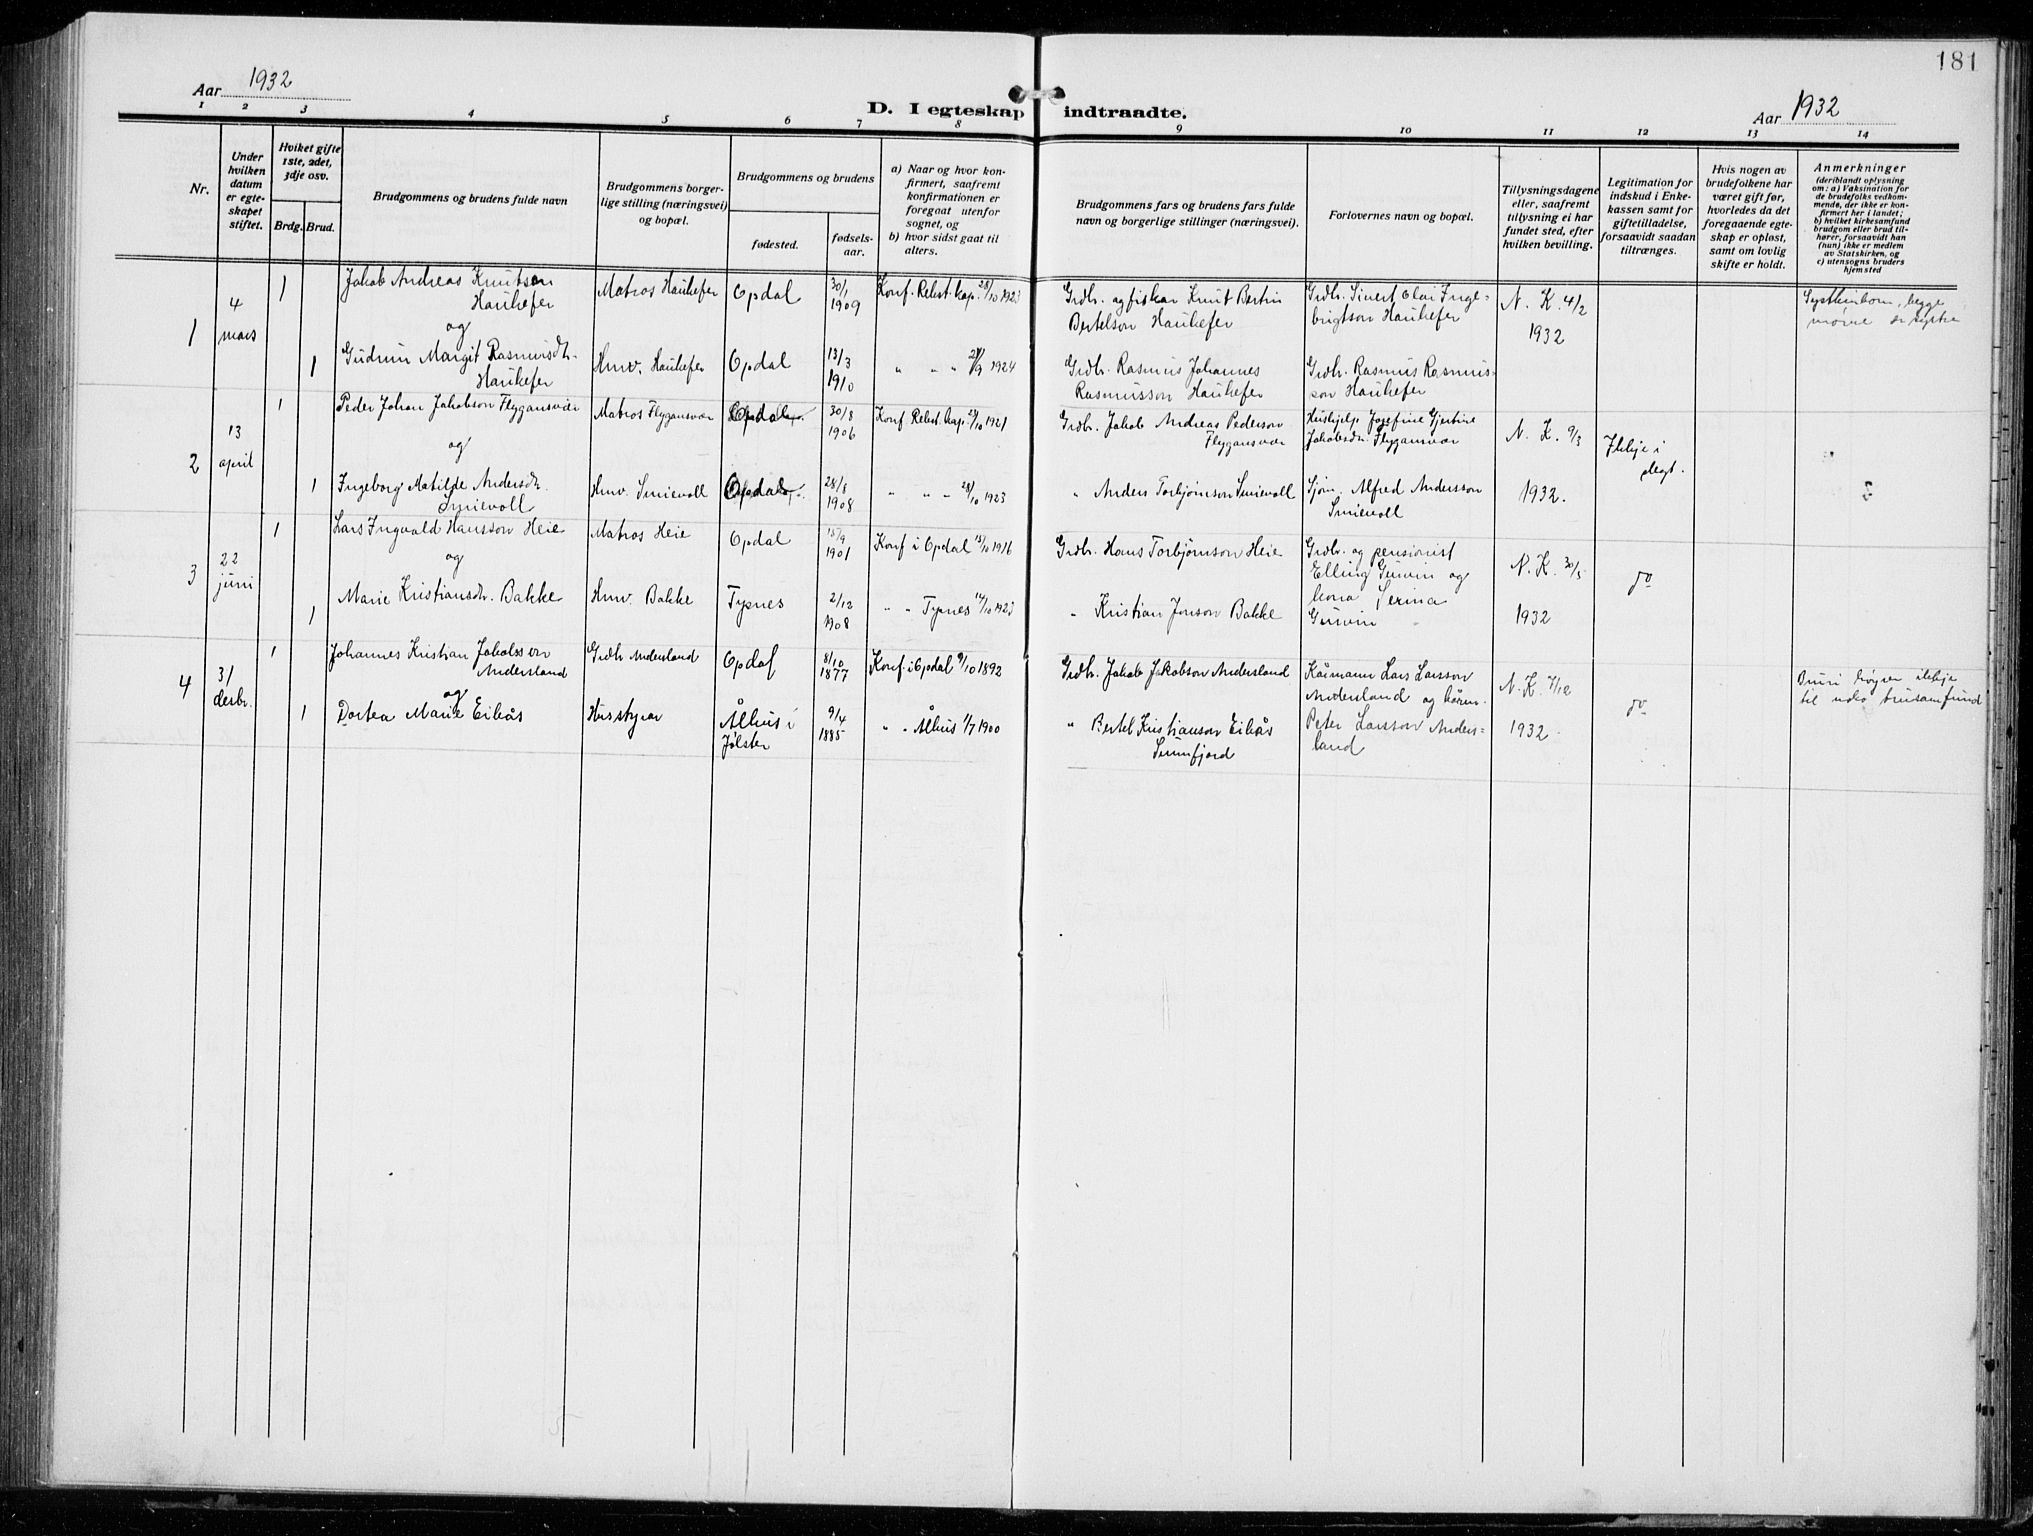 181
Aar 1932
D. I egteskap indtraadte.
Aar 1932
1 2 3 4 5 6 7 8 9 10 11 12 13 14
Nr.
Under
hvilken
datum
er egte-
skapet
stiftet.
Hviket gifte
1ste, 2det,
3dje osv.
Brdg. Brud.
Brudgommens og brudens fulde navn
Brudgommens borger-
lige stilling (næringsvei)
og bopæl.
Brudgommens og brudens
fødested.
fødsels-
aar.
a) Naar og hvor kon-
firmert, saafremt
konfirmationen er
foregaat utenfor
sognet, og
b) hvor sidst gaat til
alters.
Brudgommens fars og brudens fars fulde
navn og borgerlige stillinger (næringsvei).
Forlovernes navn og bopæl.
Tillysningsdagene
eller, saafremt
tillysning ei har
fundet sted, efter
hvilken bevilling.
Legitimation for
indskud i Enke-
kassen samt for
giftetilladelse,
forsaavidt saadan
tiltrænges.
Hvis nogen av
brudefolkene har
været gift før,
hvorledes da det
foregaaende egte-
skap er opløst,
samt om lovlig
skifte er holdt.
Anmerkninger
(deriblandt oplysning
om: a) Vaksination for
de brudefolks vedkom-
mende, der ikke er kon-
firmert her i landet;
b) hvilket kirkesamfund
brudgom eller brud til-
hører, forsaavidt han
(hun) ikke er medlem
av Statskirken, og
c) utensogns bruders
hjemsted
1
4
mars
1
Jakob Andreas Knutson
Haukefer
og
Matros Haukefer
Opdal
30/1
1909
Konf. Rekst. kap. 28/10 1923
Grdbr. og fiskar Knut Bertin
Bertelson Haukefer
Grdbr. Sivert Olai Inge-
brigtson Haukefer
N. K. 4/2
1932
Systkinborn, begge
1
Gudrun Margit Rasmusdtr.
Haukefer
Hmv. Haukefer
Opdal
13/3
1910
" " " 21/9 1924
Grdbr. Rasmus Johannes
Rasmusson Haukefer
Grdbr. Rasmus Rasmus-
son Haukefer
2
13
april
1
Peder Johan Jakobson Flygansvær
og
Matros Flygansvær
Opdal
30/8
1906
Konf. Rekst. kap. 2/10 1921
Grdbr. Jakob Andreas Pederson
Flygansvær
Hushjelp Josefine Gjertine
Jakobsdtr. Flygansvær
N. K. 9/3
1932.
Ikkje i
slegt.
1
Ingeborg Matilde Andersdtr.
Smievoll
Hmv. Smievoll
Opdal
28/8
1908
" " " 28/10 1923
" Anders Torbjørnson Smievoll
Sjøm. Alfred Andersson
Smievoll
3
22
juni
1
Lars Ingvald Hansson Heie
og
Matros Heie
Opdal
15/9
1901
Konf. i Opdal 15/10 1916
Grdbr. Hans Torbjørnson Heie
Grdbr. og pensionist
Elling Gunvin og
kona Serina
Gunvin
N. K. 30/5
1932
do
1
Marie Kristiansdtr. Bakke
Hmv. Bakke
Tysnes
2/12
1908
" " Tysnes 14/10 1923
" Kristian Jonson Bakke
4
31
desbr.
1
Johannes Kristian Jakobsson
Andersland
og
Grdbr Andersland
Opdal
8/10
1877
Konf. i Opdal 9/10 1892
Grdbr. Jakob Jakobson Andersland
Kårmann Lars Larsson
Andersland og kårm.
Peter Larsson Anders-
land
N. K. 7/12
1932.
do
1
Dortea Marie Eikås
Husstyrar
Ålhus i
Jølster
9/4
1885
" " Ålhus 1/7 1900
" Bertel Kristianson Eikås
Sunnfjord